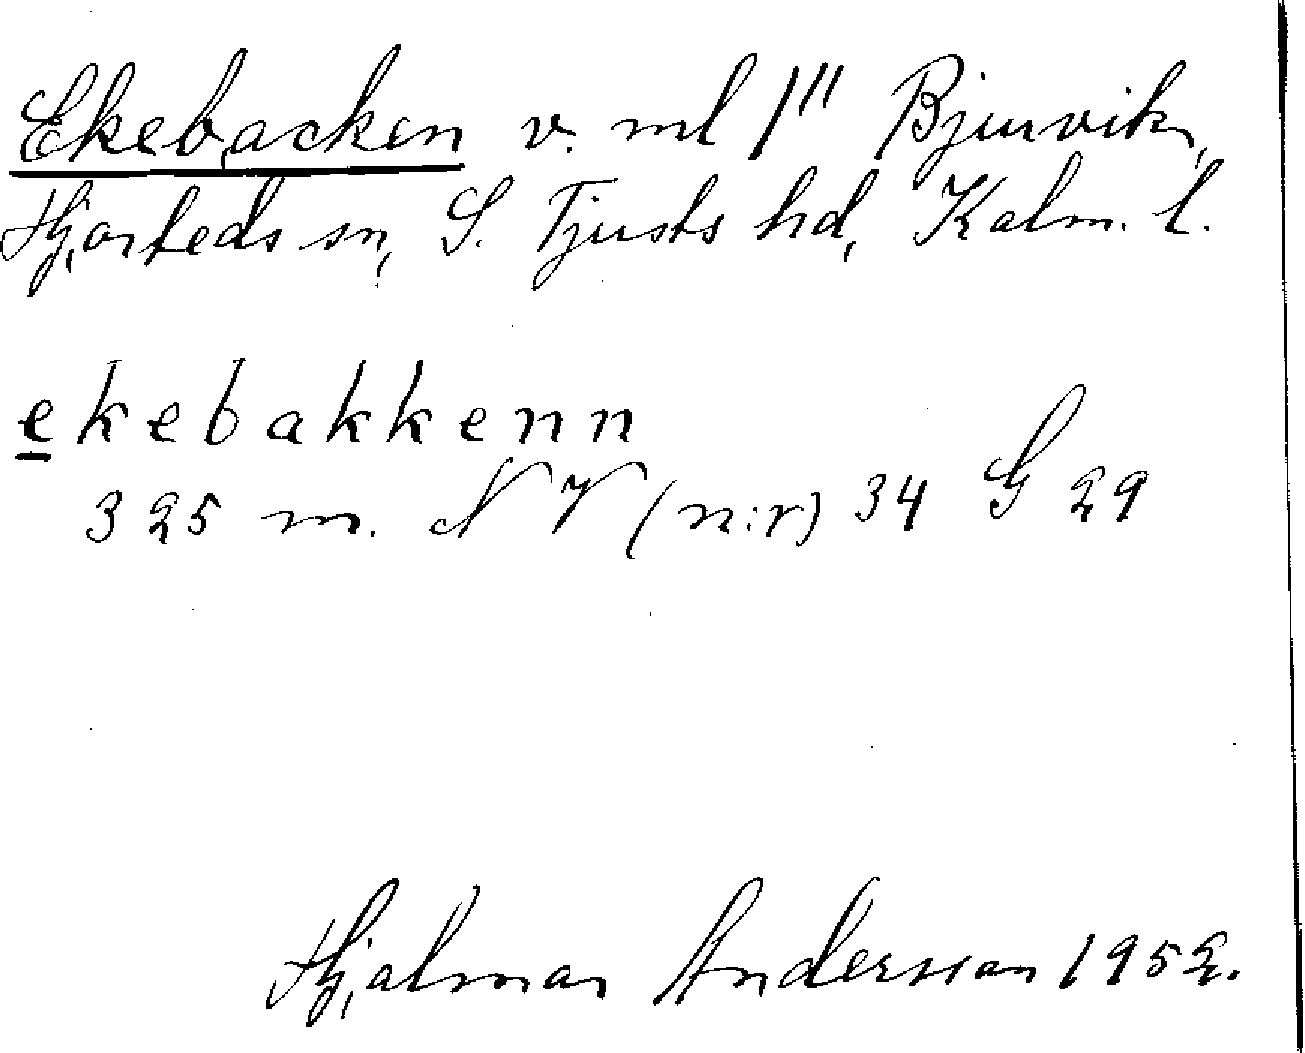 Ekebacken v. ml 1''' Bjurvik,
Hjorteds sn, S. Tjusts hd, Kalm. l.
ekebakkenn
325 m. NV (n:r) 34 G 29
Hjalmar Andersson 1952.